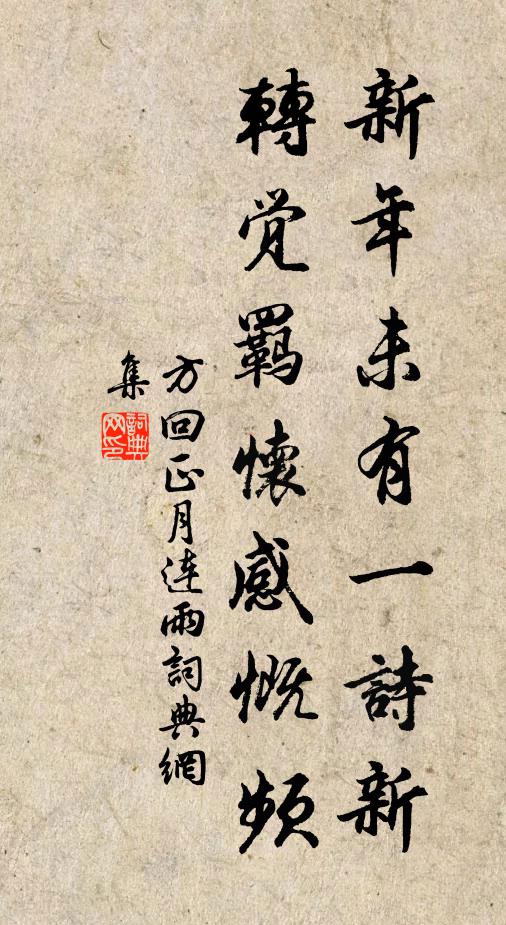 新年未有一詩新
轉覺羈懷感慨頻
方回正月連雨詞典網
集
詞典
网印